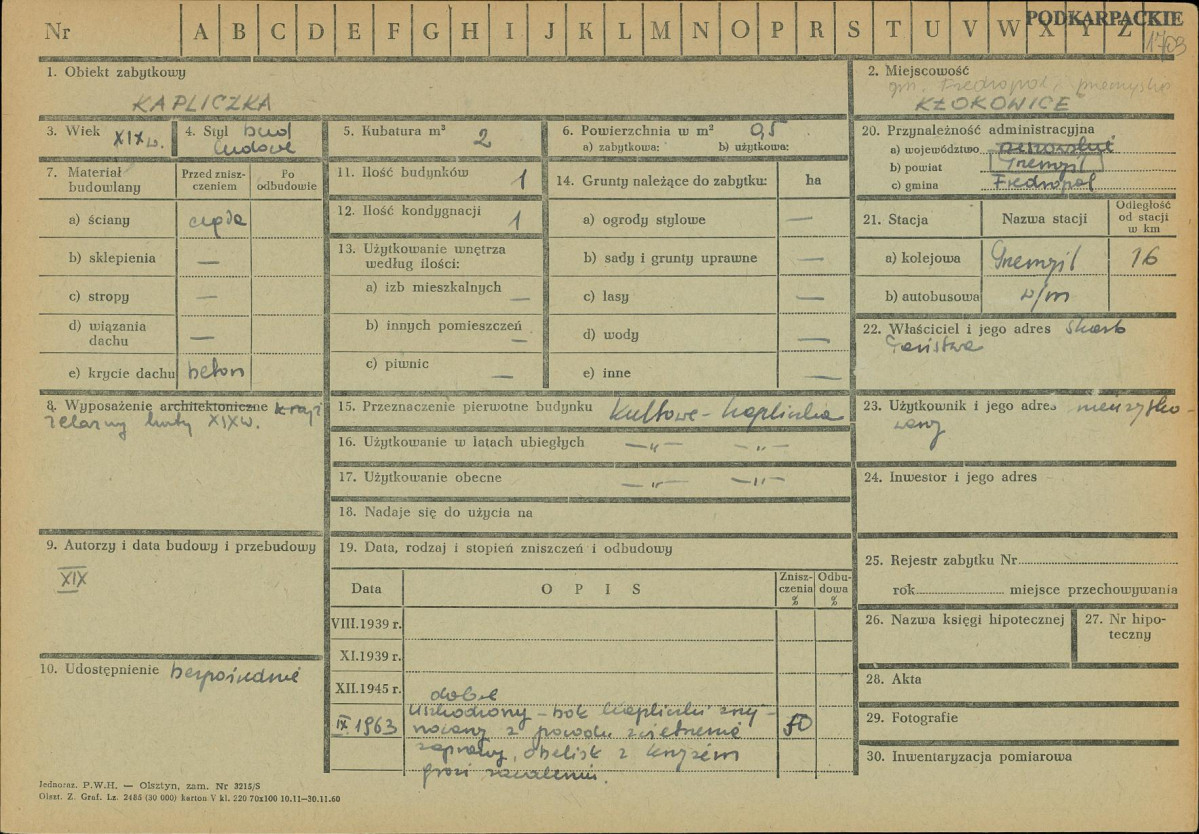 Nr A B C D E F G H I J K L M N O P R S T U V W X Y Z
PODKARPACKIE
1703
1. Obiekt zabytkowy
KAPLICZKA
2. Miejscowość
gm. Fredropol, przemyskie
KŁOKOWICE
3. Wiek XIX w.
4. Styl bud
ludowe
5. Kubatura m³ 2
6. Powierzchnia w m² 0,5
a) zabytkowa: b) użytkowa:
7. Materiał budowlany
Przed zniszczeniem
Po odbudowie
a) ściany cegła
b) sklepienia —
c) stropy —
d) wiązania dachu —
e) krycie dachu beton
8. Wyposażenie architektoniczne krzyż
żelazny kuty XIX w.
9. Autorzy i data budowy i przebudowy
XIX
10. Udostępnienie bezpośrednie
11. Ilość budynków 1
12. Ilość kondygnacji 1
13. Użytkowanie wnętrza
według ilości:
a) izb mieszkalnych —
b) innych pomieszczeń —
c) piwnic —
14. Grunty należące do zabytku: ha
a) ogrody stylowe —
b) sady i grunty uprawne —
c) lasy —
d) wody —
e) inne —
15. Przeznaczenie pierwotne budynku kultowe - kapliczka
16. Użytkowanie w latach ubiegłych —„— —„—
17. Użytkowanie obecne —„— —„—
18. Nadaje się do użycia na
19. Data, rodzaj i stopień zniszczeń i odbudowy
Data OPIS Zniszczenia % Odbudowa %
VIII.1939 r.
XI.1939 r.
XII.1945 r. dobre
IX.1963 Uszkodzony - bok kapliczki zruj- 50
nowany z powodu zwietrzenia
zaprawy, obelisk z krzyżem
grozi zawaleniem.
20. Przynależność administracyjna
a) województwo rzeszowskie
b) powiat Przemyśl
c) gmina Fredropol
21. Stacja Nazwa stacji Odległość od stacji w km
a) kolejowa Przemyśl 16
b) autobusowa w/m
22. Właściciel i jego adres Skarb
Państwa
23. Użytkownik i jego adres nieużytko-
wany
24. Inwestor i jego adres
25. Rejestr zabytku Nr
rok miejsce przechowywania
26. Nazwa księgi hipotecznej
27. Nr hipoteczny
28. Akta
29. Fotografie
30. Inwentaryzacja pomiarowa
Jednoraz. P.W.H. — Olsztyn, zam. Nr 3215/S
Olszt. Z. Graf. Lz. 2485 (30 000) karton V kl. 220 70x100 10.11—30.11.60